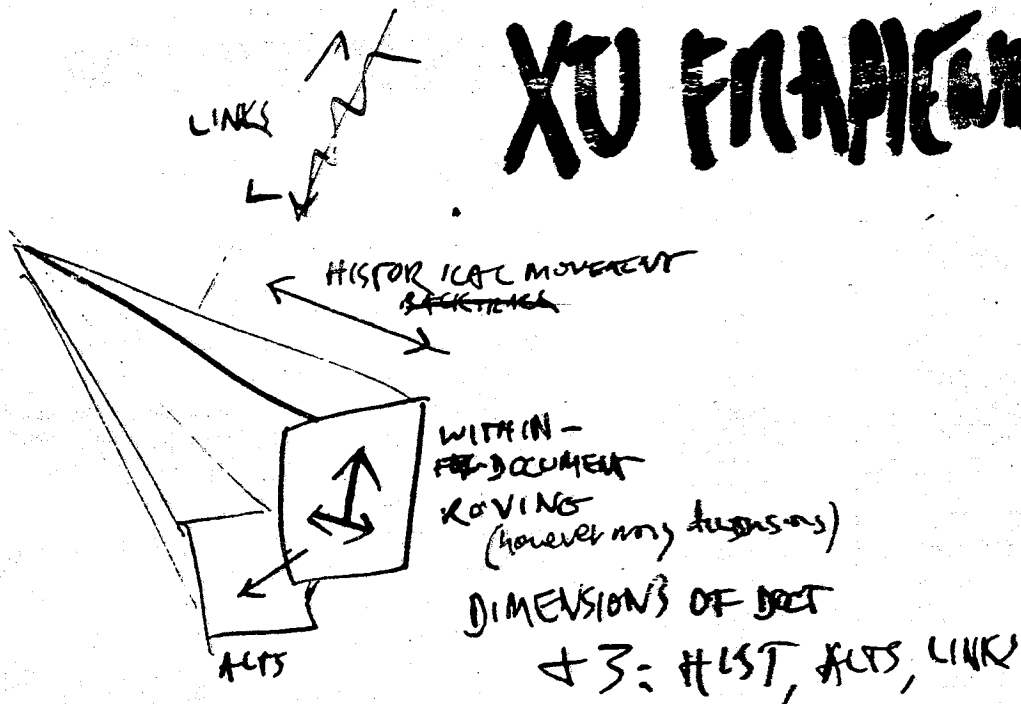 XU FRAMEW
LINKS
HISTORICAL MOVEMENT
BACKTRACK
WITHIN-
DOCUMENT
ROVING
(however many dimensions)
DIMENSIONS OF DOCT
+3: HIST, ALTS, LINKS
ALTS